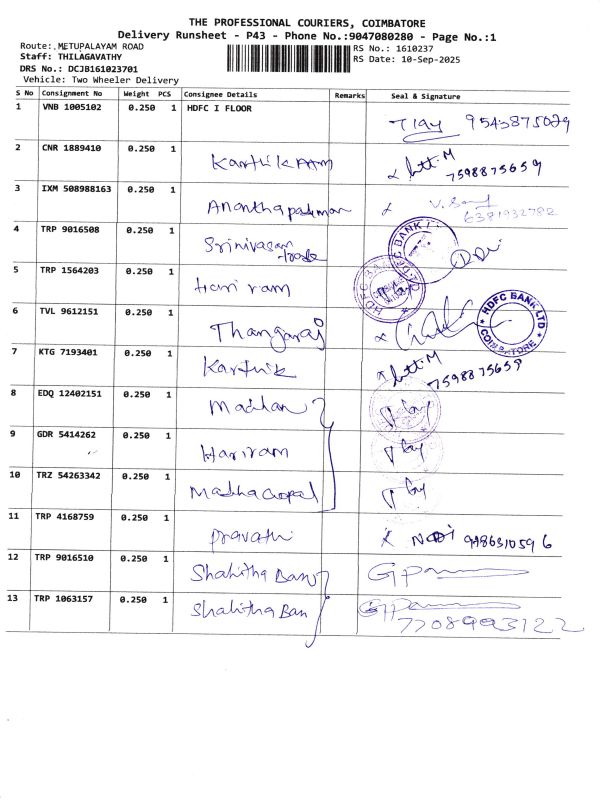 THE PROFESSIONAL COURIERS, COIMBATORE
Delivery Runsheet - P43 - Phone No.:9047080280 - Page No.:1
Route: METUPALAYAM ROAD
RS No.: 1610237
Staff: THILAGAVATHY
RS Date: 10-Sep-2025
DRS No.: DCJB161023701
Vehicle: Two Wheeler Delivery
S No Consignment No Weight PCS Consignee Details Remarks Seal & Signature
1 VNB 1005102 0.250 1 HDFC I FLOOR
9543875029
2 CNR 1889410 0.250 1 Karthik
7598875659
3 IXM 508988163 0.250 1 Ananthapadman
6381932782
4 TRP 9016508 0.250 1 Srinivasan
HDFC BANK
5 TRP 1564203 0.250 1 Hari ram
HDFC BANK
6 TVL 9612151 0.250 1 Thangaraj
HDFC BANK LTD
COIMBATORE
7 KTG 7193401 0.250 1 Karthik
7598875659
8 EDQ 12402151 0.250 1 Madhan
9 GDR 5414262 0.250 1 Hariram
10 TRZ 54263342 0.250 1 Madha Gopal
11 TRP 4168759 0.250 1 Pravathi
12 TRP 9016510 0.250 1 Shahitha Banu
13 TRP 1063157 0.250 1 Shahitha Ban
7708993122